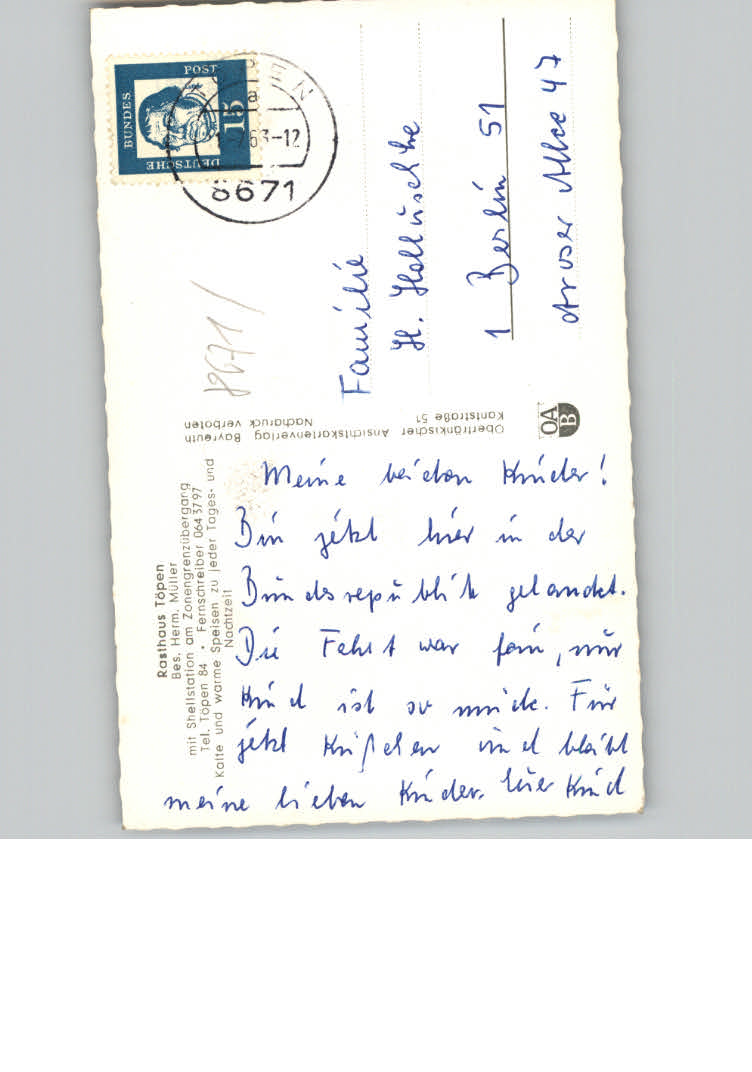 Rasthaus Töpen
Bes. Herm. Müller
mit Shellstation am Zonengrenzübergang
Tel. Töpen 84 • Fernschreiber 064 37 97
Kalte und warme Speisen zu jeder Tages- und
Nachtzeit
Meine beiden Kinder!
Bin jetzt hier in der
Bundesrepublik gelandet.
Die Fahrt war fein, nur
Kind ist so müde. Für
jetzt Küßchen und bleibt
meine lieben Kinder. Euer Kind
Oberfränkischer Ansichtskartenverlag Bayreuth
Kantstraße 51 Nachdruck verboten
OA
B
DEUTSCHE
BUNDES
POST
15
a
63-12
8671
8671
Familie
H. Holluschke
1 Berlin 51
Aroser Allee 47